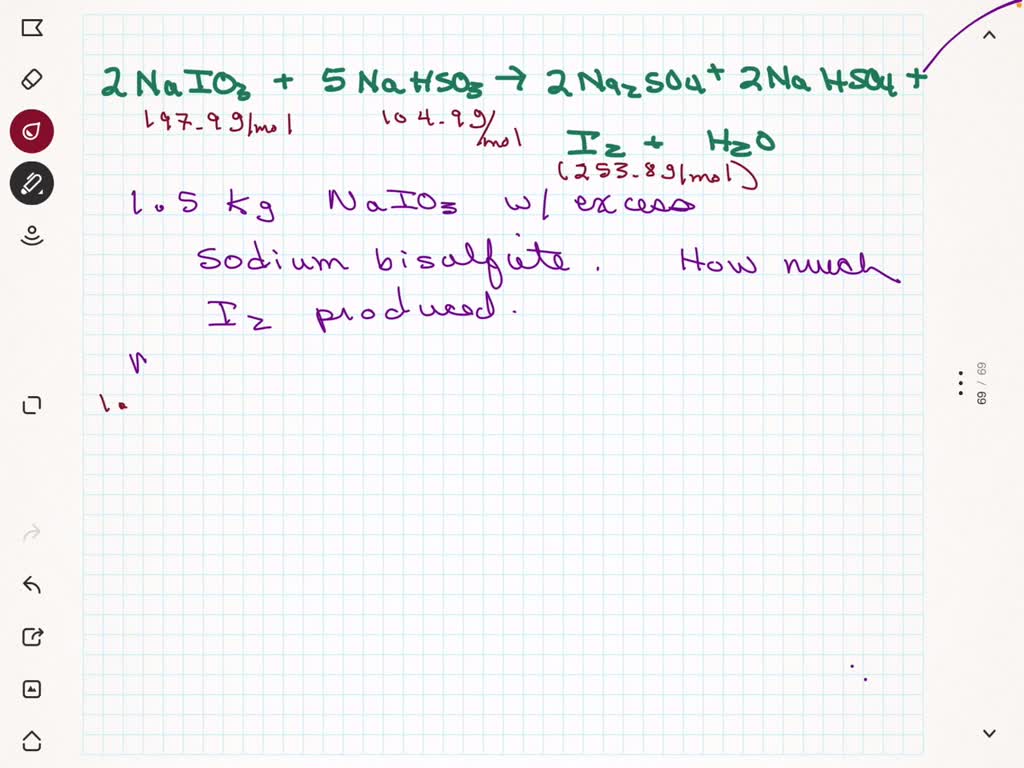 2NaIO3 + 5NaHSO3 → 2Na2SO4 + 2NaHSO4 +
197.9g/mol 104.9g/mol
I2 + H2O
(253.8g/mol)
1.5 kg NaIO3 w/ excess
sodium bisulfite. How much
I2 produced.
1.
69 / 69